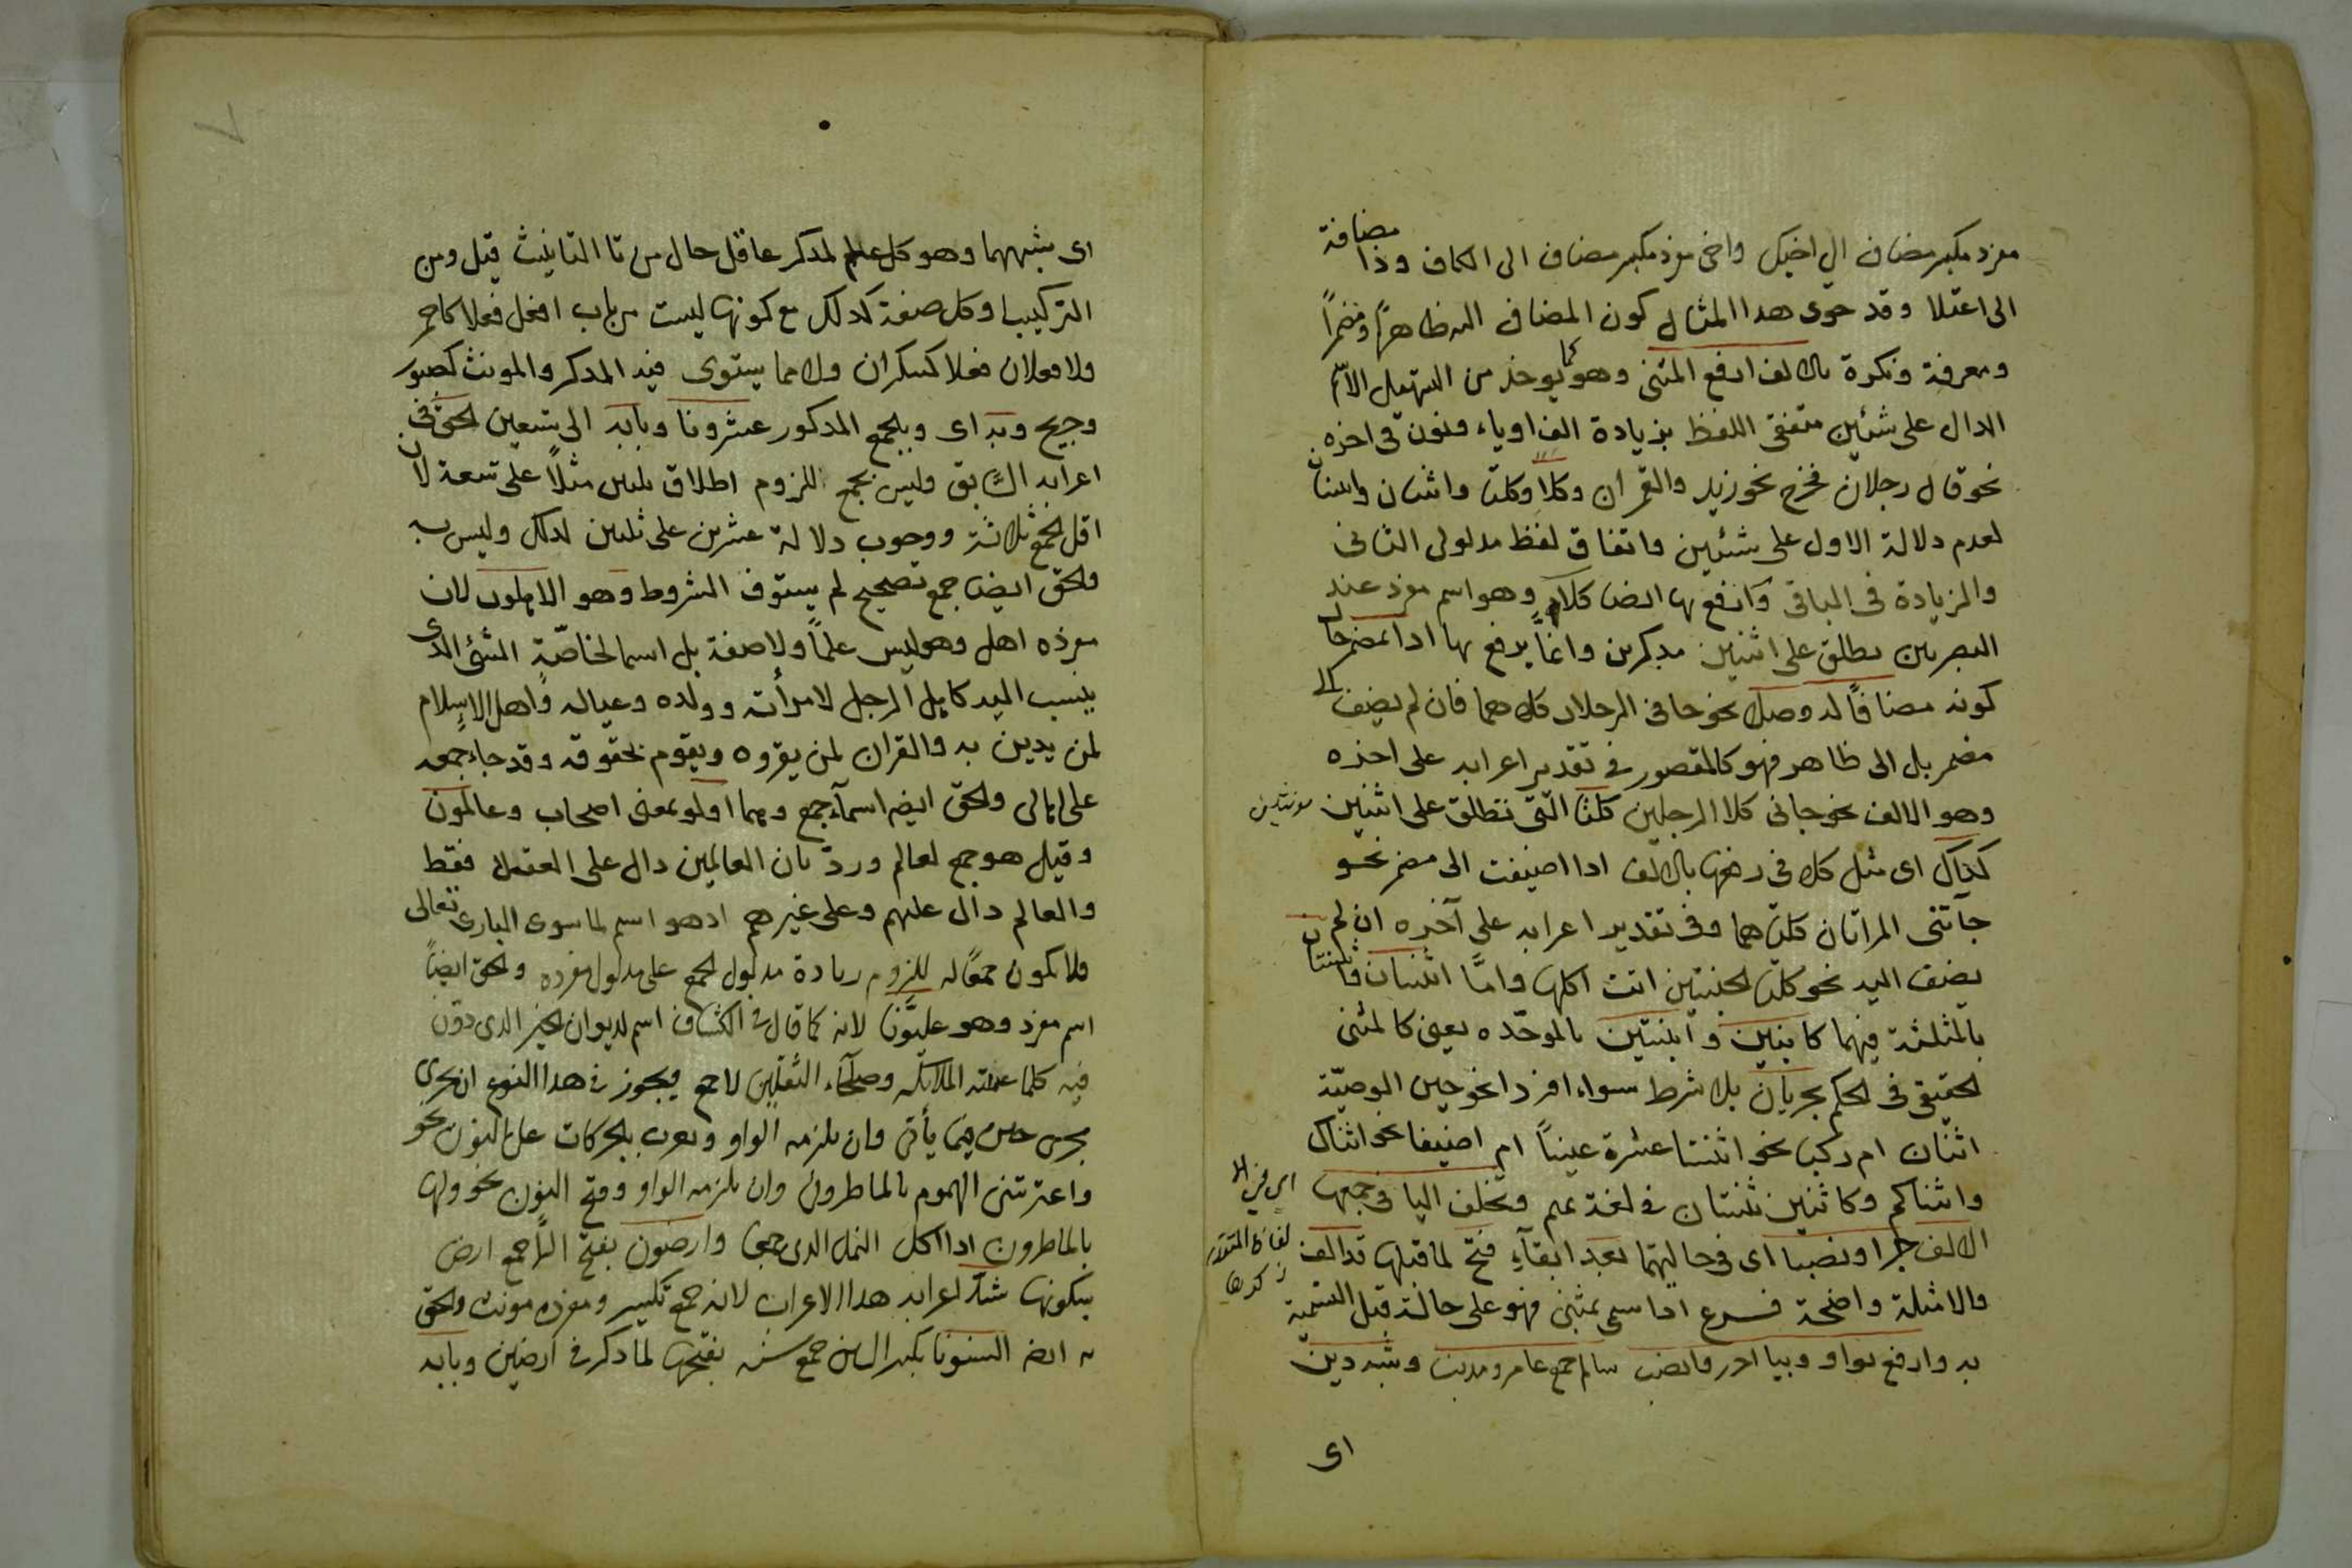 مفرد مكبر مضاف الى اخيك واخى مفرد مكبر مضاف الى الكاف وذا مضافة
الى اعتلا وقد حوى هدا المثال كون المضاف اليه ظاهرًا ومضمرًا
ومعرفة ونكرة بالالف ارفع المثنى وهو كما يوخذ من التسهيل الاسم
الدال على شئين متفقى اللفظ بزيادة الف او ياء ونون فى اخره
نحو قال رجلان فخرج نحو زيد والقمران وكلا وكلتا واثنان واثنتان
لعدم دلالة الاول على شئين واتفاق لفظ مدلولى الثانى
والزيادة فى الباقى وارفع بها ايضا كلا وهو اسم مفرد عند
البصريين يطلق على اثنين مدكرين وانما يرفع بها ادا بمضمر حال
كونه مضافًا له وصلا نحو جانى الرجلان كلاهما فان لم يضف الى
مضمر بل الى ظاهر فهو كالمقصور فى تقدير اعرابه على اخره
وهو الالف نحو جانى كلا الرجلين كلتا التى تطلق على اثنتين مونثتين
كذاك اى مثل كلا فى رفعها بالالف ادا اضيفت الى مضمر نحو
جآتنى المراتان كلتاهما وفى تقدير اعرابه على آخره ان لم
يضف اليه نحو كلتا الجنتين اتت اكلها وامّا اثنان واثنتان
بالمثلثة فيهما كابنين وابنتين بالموحّده يعنى كالمثنى
الحقيقى فى الحكم يجريان بلا شرط سواء افردا نحو حين الوصيّة
اثنان ام ركبا نحو اثنتا عشرة عينًا ام اضيفا نحو اثناك
واثناكم وكاثنين ثنتان فى لغة تميم وتخلف اليا فى جميعها
الالف جرا ونصبا اى فى حالتيهما بعد ابقآء فتح لما قبلها قد الف
والامثلة واضحة فرع ادا سمى بمثنى فهو على حالة قبل التسمية
به وارفع بواو وبيا اجرر وانصب سالم جمع عامر ومدنب وشبه دين
اى
اى شبههما وهو كل علم لمدكر عاقل خال من تا التانيث قيل ومن
التركيب وكل صفة كدلك مع كونها ليست من باب افعل فعلا كاحمر
ولا فعلان فعلا كسكران ولا مما يستوى فيه المدكر والمونث كصبور
وجريح وبه اى وبالجمع المدكور عشرونا وبابه الى تسعين الحق فى
اعرابه السّابق وليس بجمع للزوم اطلاق ثلثين مثلًا على تسعة لان
اقل الجمع ثلاثة ووجوب دلالة عشرين على ثلثين لدلك وليس به
والحق ايضا جمع تصحيح لم يستوف الشروط وهو الاهلون لان
مفرده اهل وهو ليس علمًا ولا صفة بل اسما لخاصّة الشئ الدى
ينسب اليه كاهل الرجل لامرأته وولده وعياله واهل الاسلام
لمن يدين به والقران لمن يقروه ويقوم بحقوقه وقد جاء جمعه
على اهالى والحق ايضا اسمآء جمع وهما اولو بمعنى اصحاب وعالمون
وقيل هو جمع لعالم وردّ بان العالمين دال على العقلا فقط
والعالم دال عليهم وعلى غيرهم ادهو اسم لما سوى البارى تعالى
فلا يكون جمعًا له للزوم زيادة مدلول الجمع على مدلول مفرده والحق ايضًا
اسم مفرد وهو عليّونا لانه كما قال فى الكشاف اسم لديوان الخير الدى دوّن
فيه كلما عملته الملائكه وصلحآء الثقلين لا جمع ويجوز فى هدا النوع ان يجرى
مجرى حين فيما يأتى وان يلزمه الواو ويعرب بالحركات على النون نحو
واعترتنى الهموم بالماطرون وان يلزمه الواو وفتح النون نحو ولها
بالماطرون ادا اكل النمل الدى جمعا وارضون بفتح الرّا جمع ارض
بسكونها شدّ اعرابه هدا الاعراب لانه جمع تكسير ومفرده مونث والحق
به ايضا السنونا بكسر السين جمع سنه بفتحها لما دكر فى ارضين وبابه